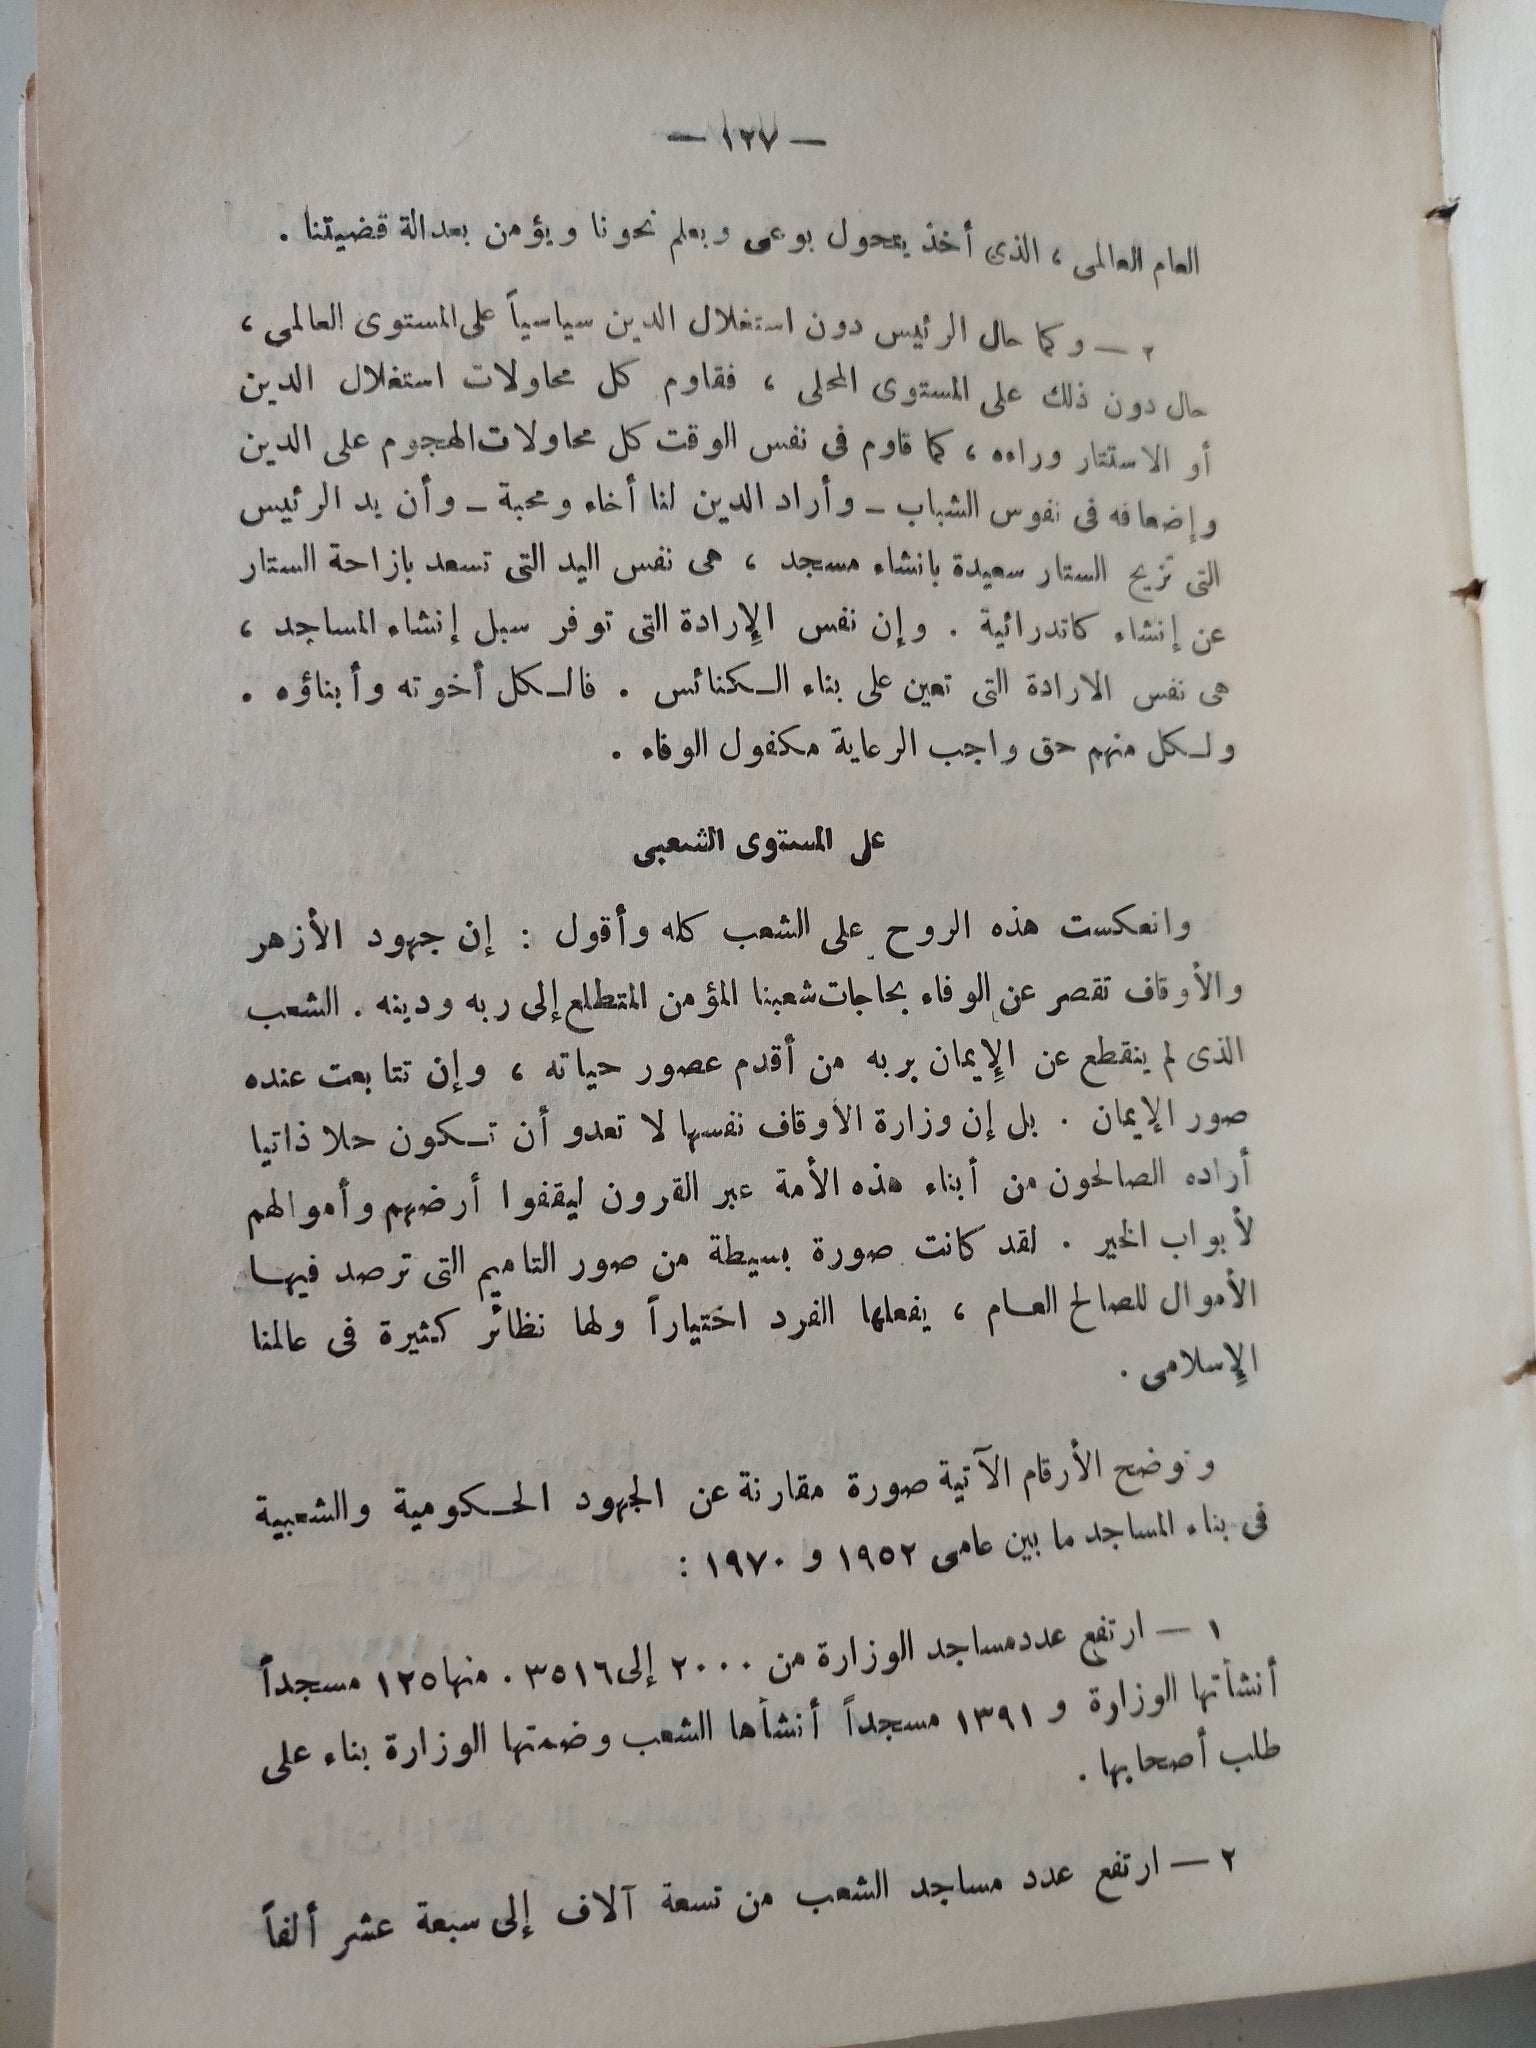 — ١٢٧ —
العام العالمى ، الذى أخذ يتحول بوعى وبعلم نحونا ويؤمن بعدالة قضيتنا .
٢ — وكما حال الرئيس دون استغلال الدين سياسياً على المستوى العالمى ،
حال دون ذلك على المستوى المحلى ، فقاوم كل محاولات استغلال الدين
أو الاستتار وراءه ، كما قاوم فى نفس الوقت كل محاولات الهجوم على الدين
وإضعافه فى نفوس الشباب ــ وأراد الدين لنا أخاء ومحبة ــ وأن يد الرئيس
التى تزيح الستار سعيدة بانشاء مسجد ، هى نفس اليد التى تسعد بازاحة الستار
عن إنشاء كاتدرائية . وإن نفس الإرادة التى توفر سبل إنشاء المساجد ،
هى نفس الارادة التى تعين على بناء الـكنائس . فالـكل أخوته وأبناؤه .
ولـكل منهم حق واجب الرعاية مكفول الوفاء .
على المستوى الشعبى
وانعكست هذه الروح على الشعب كله وأقول : إن جهود الأزهر
والأوقاف تقصر عن الوفاء بحاجات شعبنا المؤمن المتطلع إلى ربه ودينه . الشعب
الذى لم ينقطع عن الإيمان بربه من أقدم عصور حياته ، وإن تتابعت عنده
صور الإيمان . بل إن وزارة الأوقاف نفسها لا تعدو أن تـكون حلا ذاتيا
أراده الصالحون من أبناء هذه الأمة عبر القرون ليقفوا أرضهم وأموالهم
لأبواب الخير . لقد كانت صورة بسيطة من صور التاميم التى ترصد فيهـا
الأموال للصالح العـام ، يفعلها الفرد اختياراً ولها نظائر كثيرة فى عالمنا
الإسلامى .
وتوضح الأرقام الآتية صورة مقارنة عن الجهود الحـكومية والشعبية
فى بناء المساجد ما بين عامى ١٩٥٢ و ١٩٧٠ :
١ — ارتفع عدد مساجد الوزارة من ٢٠٠٠ إلى ٣٥١٦ . منها ١٢٥ مسجداً
أنشأتها الوزارة و ١٣٩١ مسجداً أنشأها الشعب وضمتها الوزارة بناء على
طلب أصحابها .
٢ — ارتفع عدد مساجد الشعب من تسعة آلاف إلى سبعة عشر ألفاً